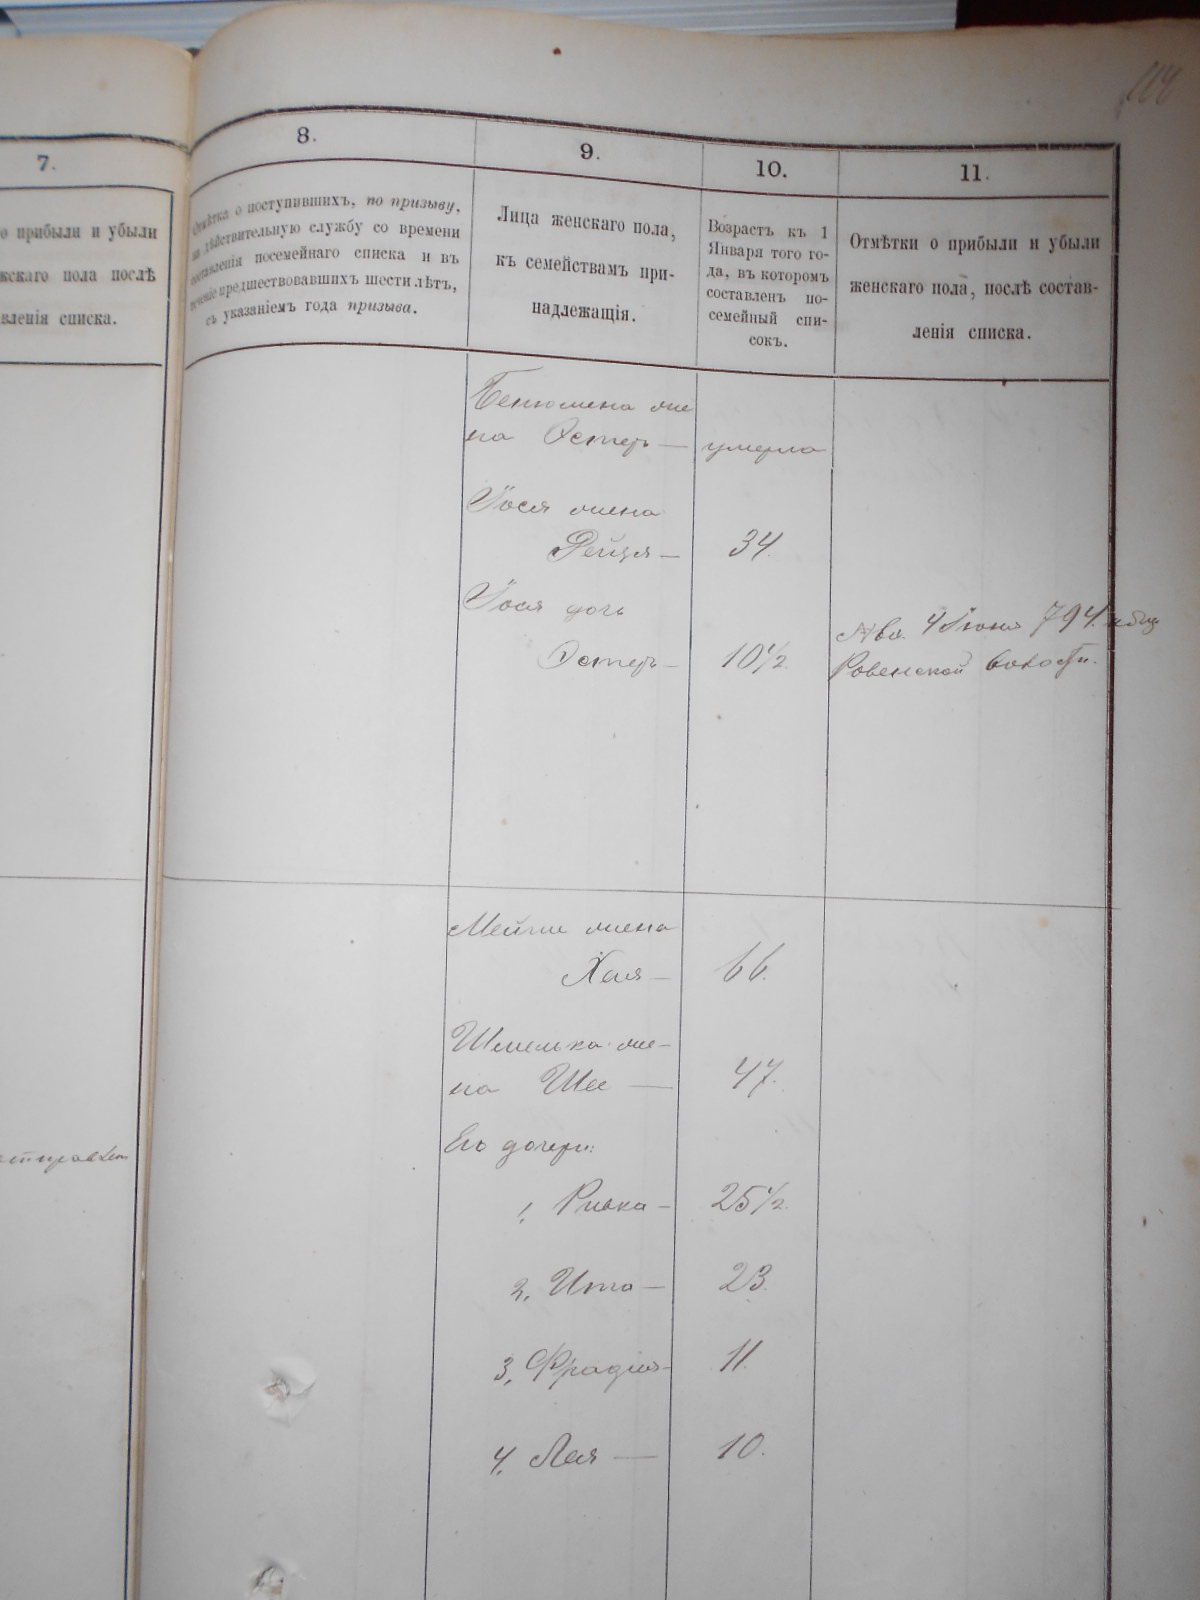 114
7.
о прибыли и убыли
жскаго пола послѣ
вленія списка.
8.
Отмѣтка о поступившихъ, по призыву,
на дѣйствительную службу со времени
составленія посемейнаго списка и въ
теченіе предшествовавшихъ шести лѣтъ,
съ указаніемъ года призыва.
9.
Лица женскаго пола,
къ семействамъ при-
надлежащія.
10.
Возрастъ къ 1
Января того го-
да, въ которомъ
составленъ по-
семейный спи-
сокъ.
11.
Отмѣтки о прибыли и убыли
женскаго пола, послѣ состав-
ленія списка.
Бенюмена же
на Эстеръ — умерла
Іося жена
Рейзя — 34.
Іося дочь
Эстеръ — 10½.
4 Іюня 794
Ровенской волости.
Мейши жена
Хая — 66.
Шмелька же-
на Шее — 47.
Его дочери:
1, Ривка — 25½.
2, Ита — 23.
3, Фрадия — 11.
4, Лея — 10.